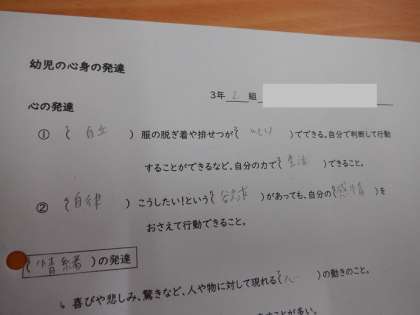 幼児の心身の発達
3年 2 組
心の発達
① { 自立 } 服の脱ぎ着や排せつが{ ひとり }でできる。自分で判断して行動
することができるなど、自分の力で{ 生活 }できること。
② { 自律 } こうしたい!という{ 欲求 }があっても、自分の{ 感情 }を
おさえて行動できること。
{ 情緒 }の発達
喜びや悲しみ、驚きなど、人や物に対して現れる{ 心 }の動きのこと。